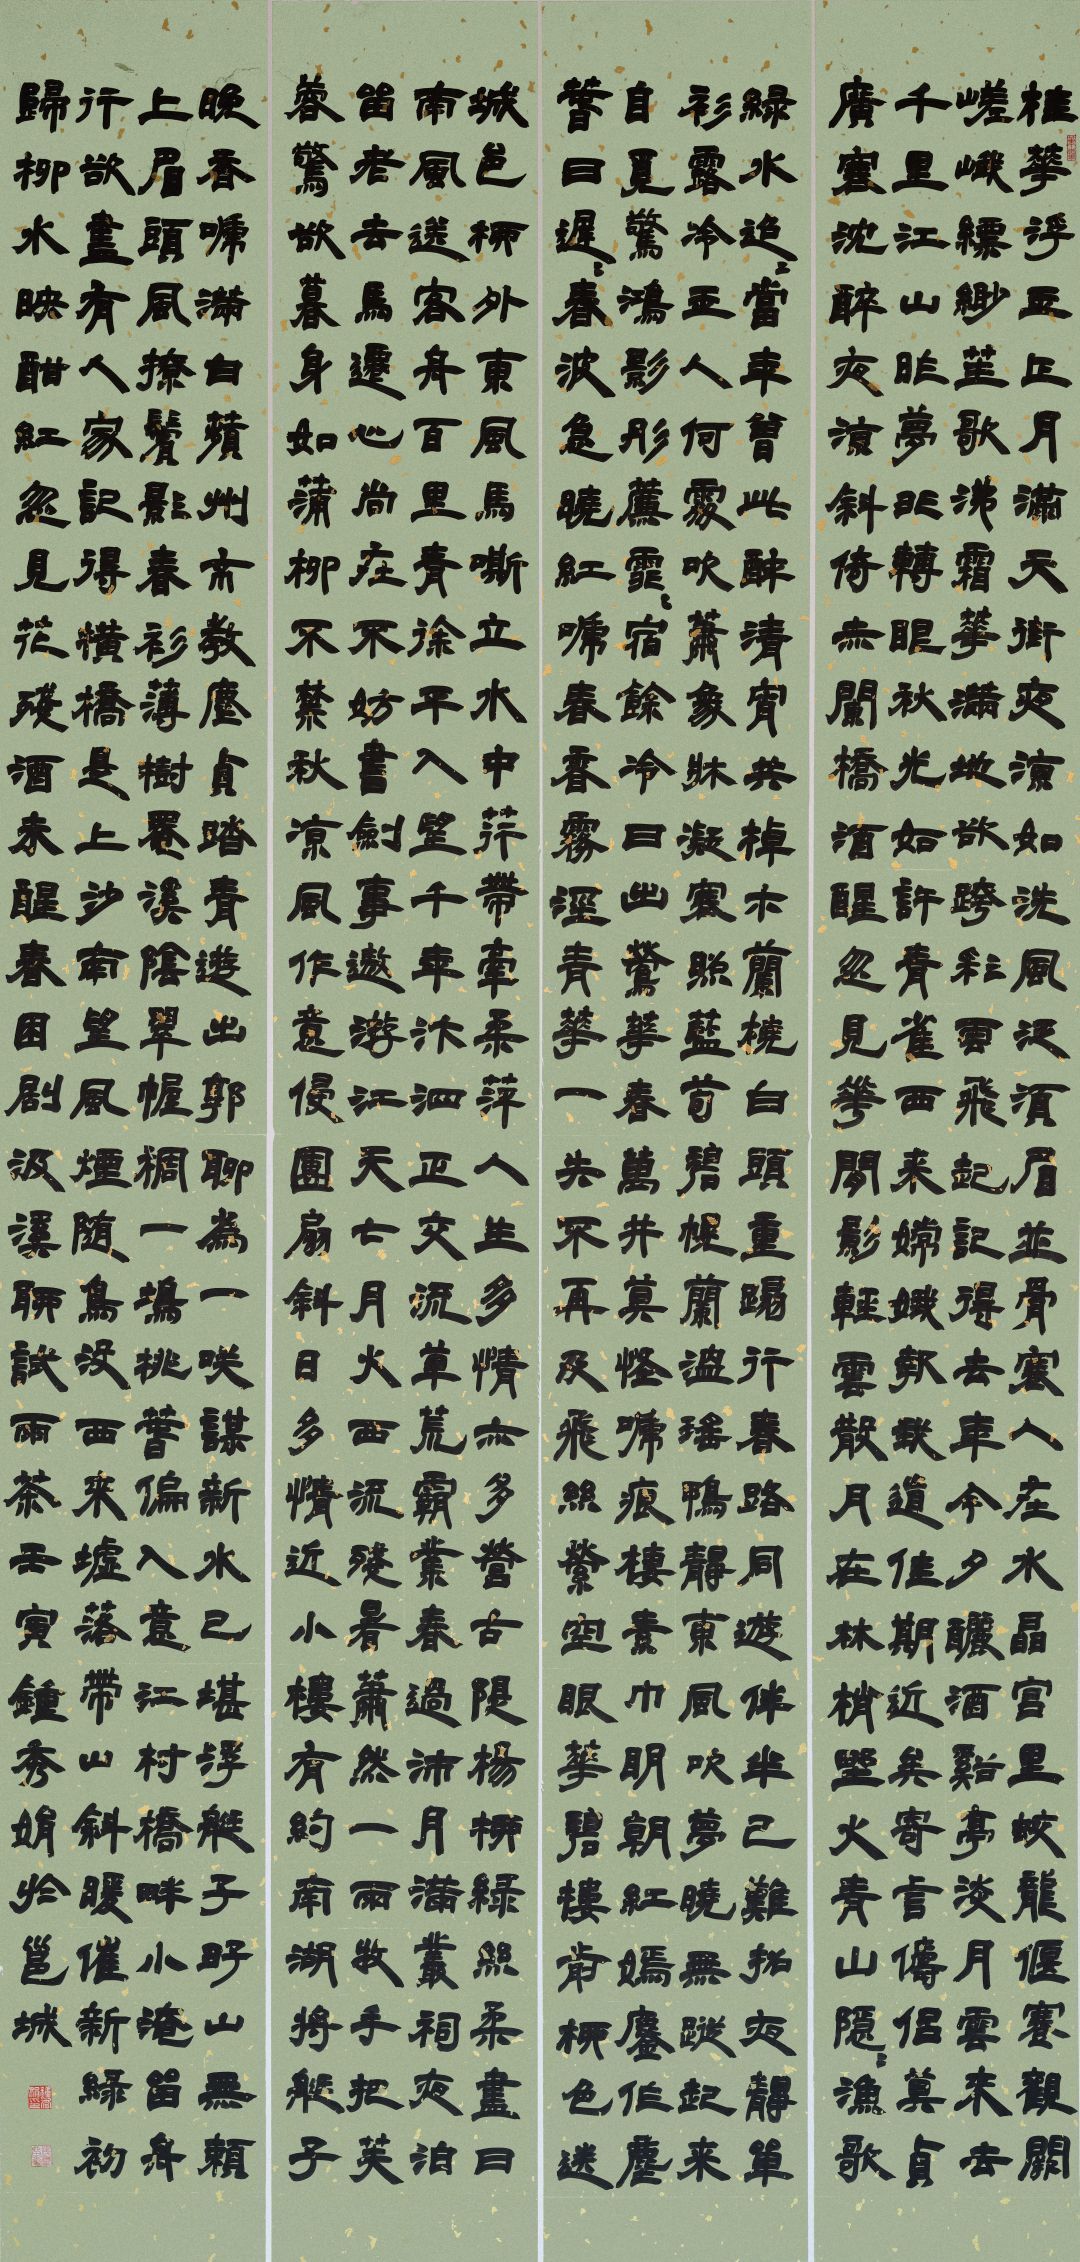 桂華浮玉正月滿天街夜涼如洗風泛須眉並骨寒人在水晶宮里蛟龍偃蹇觀闕
嵯峨縹緲笙歌沸霜華滿地欲跨彩雲飛起記得去年今夕釃酒谿亭淡月雲來去
千里江山昨夢非轉眼秋光如許青雀西來嫦娥報我道佳期近矣寄言儔侶莫負
廣寒沈醉夜涼斜倚赤闌橋酒醒忽見華間影輕雲散月在林梢野火青山隱〻漁歌
綠水迢〻當年曾此醉清宵共棹木蘭橈白頭重踢行春路同遊伴半已難招夜靜單
衫露冷玉人何處吹簫象牀凝寒照藍筍碧幌蘭盪瑤鴨靜東風吹夢曉無蹤起來
自覓驚鴻影彤薰霏〻宿餘冷日出鶯華春萬井莫怪啼痕棲素巾明朝紅嫣塵作塵
瞢日遲〻春波急曉紅啼春香霧溼青華一失不再及飛絲縈空眼華碧樓前柳色迷
城邑柳外東風馬嘶立水中荇帶牽柔萍人生多情亦多營古隄楊柳綠絲柔盡日
南風送客舟百里青徐平入望千年汴泗正交流草荒霸業春過沛月滿叢祠夜泊
留老去馬遷心尚在不妨書劍事遨游江天七月火西流殘暑蕭然一雨收手把芙
蓉驚欲暮身如蒲柳不禁秋涼風作意侵團扇斜日多情近小樓有約南湖將艇子
晚香啼滿白蘋州未教塵負踏青遊出郭聊為一笑謀新水已堪浮艇子好山無賴
上眉頭風撩鬢影春衫薄樹罨溪陰翠幄稠一塢桃瞢偏入意江村橋畔小淹留舟
行欲盡有人家記得橫橋是上沙南望風煙隨鳥沒西來墟落帶山斜暖催新綠初
歸柳水映酣紅忽見花殘酒未醒春困剧汲溪聊試雨茶壬寅鍾秀娟於邕城